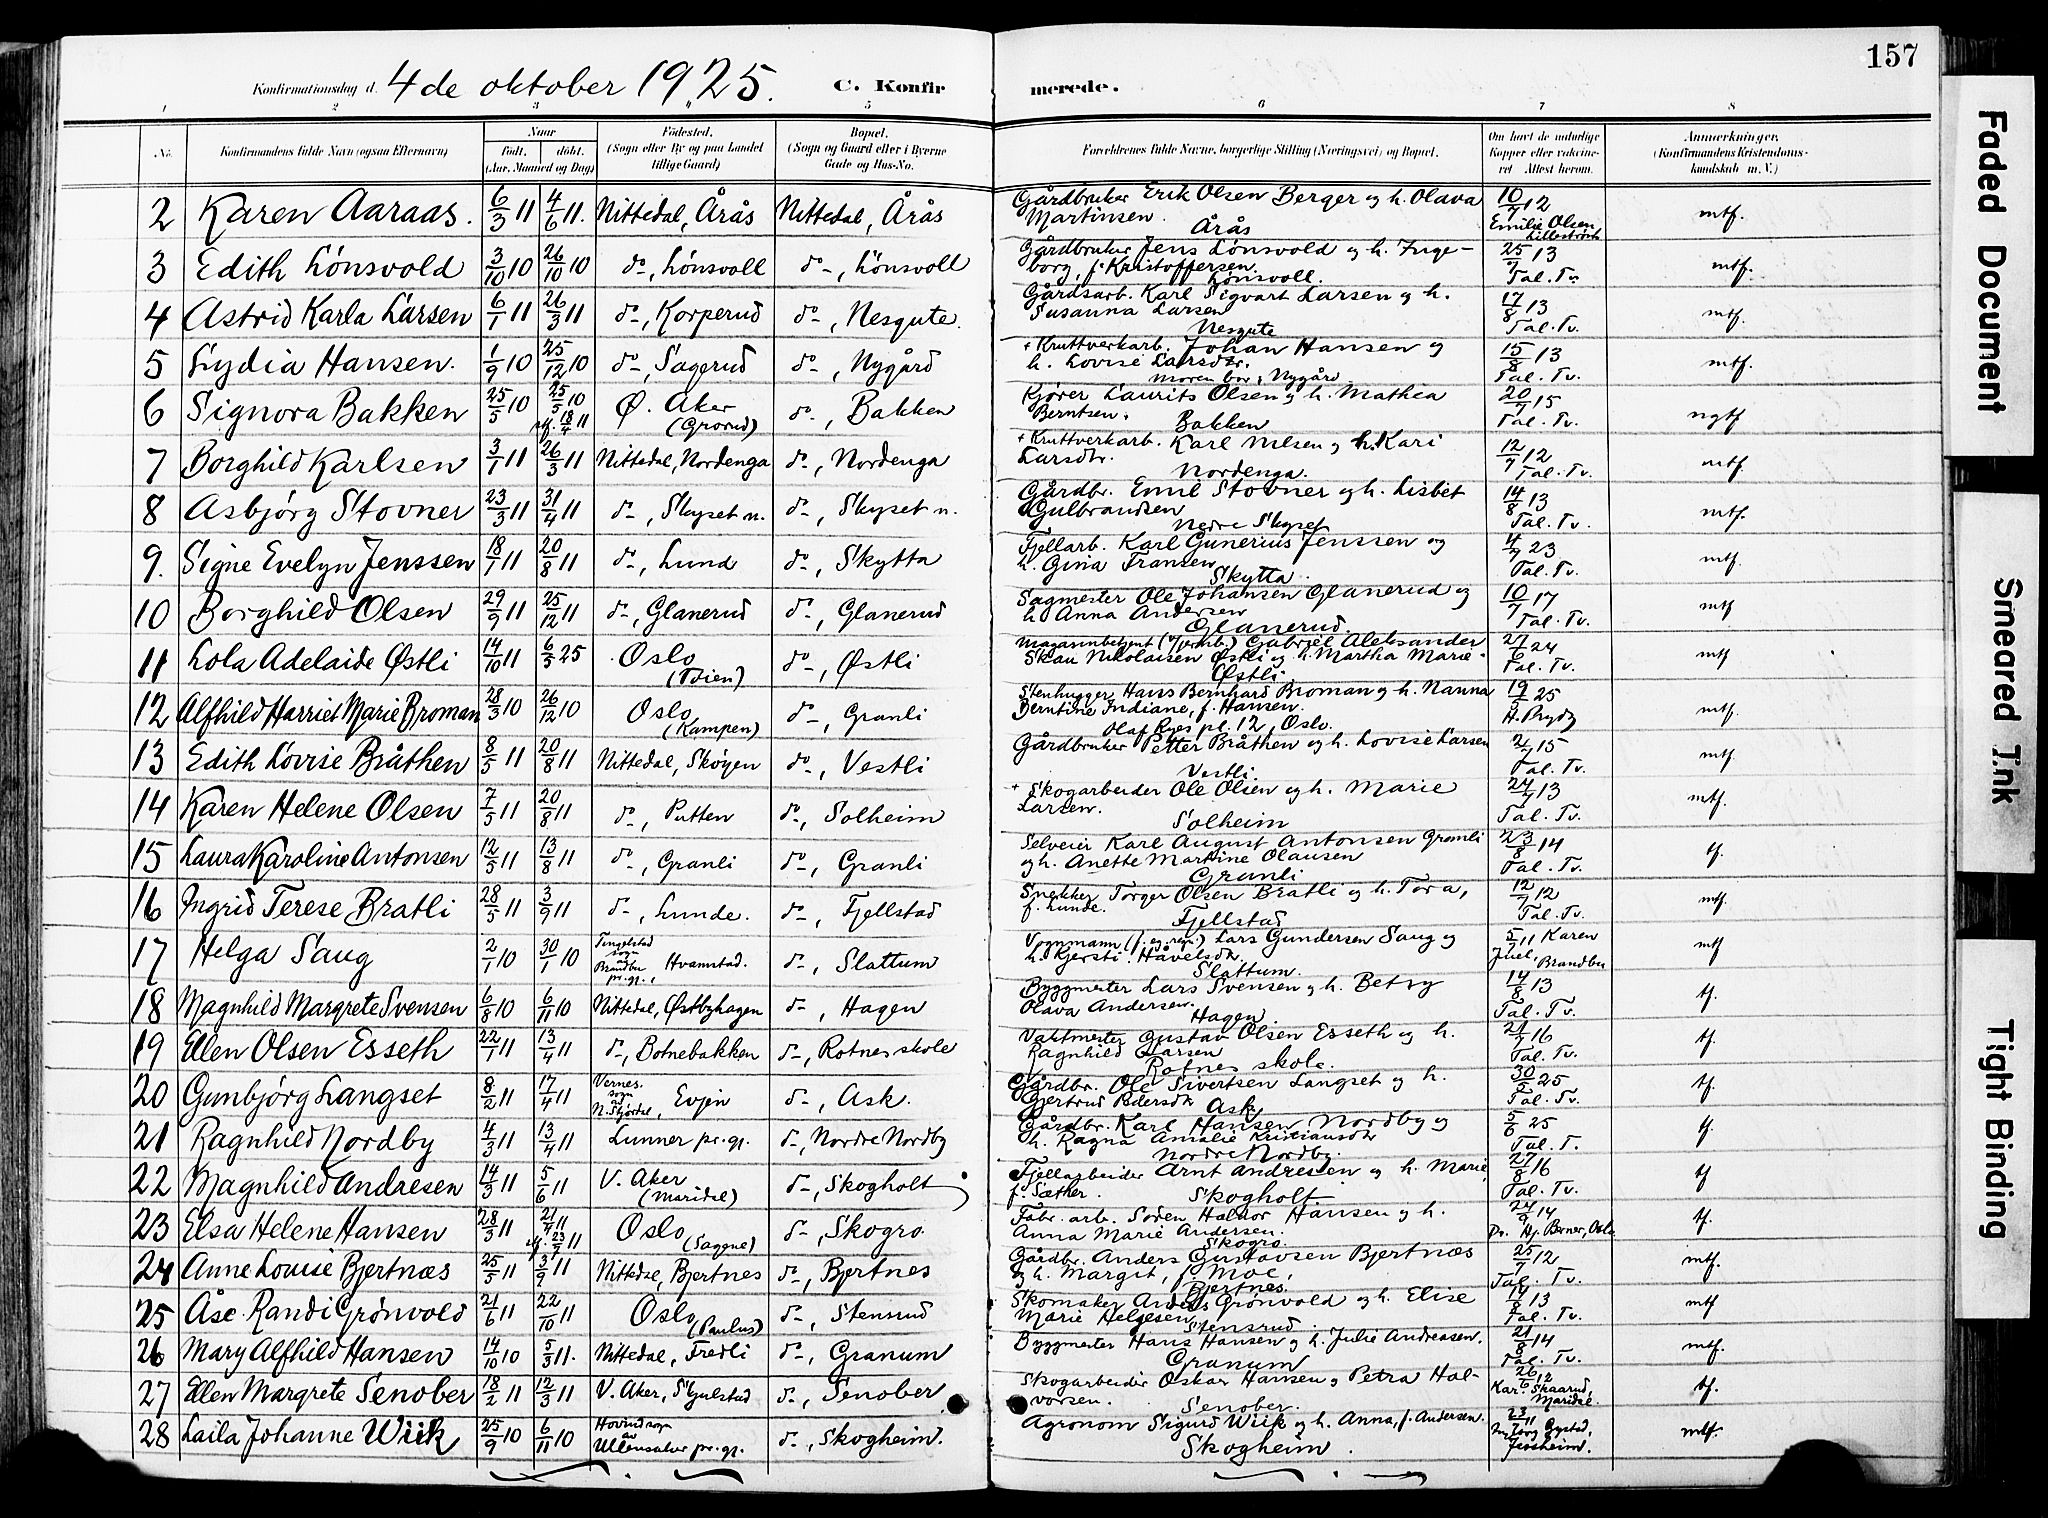 157
Konfirmationsdag d. 4de oktober 1925. C. Konfirmerede.
1 2 3 5 6 7 8
No. Konfirmandens fulde Navn (ogsaa Efternavn) Naar født, døbt. (Aar, Maaned og Dag) Fødested. (Sogn eller By og paa Landet tillige Gaard) Bopæl. (Sogn og Gaard eller i Byerne Gade og Hus-No. Forældrenes fulde Navne, borgerlige Stilling (Næringsvei) og Bopæl. Om havt de naturlige Kopper eller vakcineret. Attest herom. Anmerkninger. (Konfirmandens Kristendomskundskab m. V.)
2 Karen Aaraas. 6/3 11 4/6 11. Nittedal, Årås Nittedal, Årås Gårdbruker Erik Olsen Berger og h. Olava Martinsen. Årås 10/7 12 Emilie Olsen Lillestrøm mtf.
3 Edith Lönsvold 3/10 10 26/10 10 do-, Lönsvoll do-, Lönsvoll Gårdbruker Jens Lönsvold og h. Ingeborg, f. Kristoffersen. Lönsvoll. 25/7 13 Tal. Tv. mtf.
4 Astrid Karla Larsen 6/1 11 26/3 11 do-, Korperud do-, Nesgute. Gårdsarb. Karl Sigvart Larsen og h. Susanna Larsen Nesgute 17/8 13 Tal. Tv. mtf.
5 Lydia Hansen. 1/9 10 25/12 10 do-, Sagerud do-, Nygård + Kruttverkarb. Johan Hansen og h. Lovise Larsdtr. moren bor, Nygård 15/8 13 Tal. Tv. mtf.
6 Signora Bakken 25/5 10 25/5 10 stf. 18/4 11 Ø. Aker (Grorud) do-, Bakken Kjører Laurits Olsen og h. Mathea Berntsen. Bakken 20/7 15 Tal. Tv. ngtf
7 Borghild Karlsen 3/1 11 26/3 11 Nittedal, Nordenga do-, Nordenga + Kruttverkarb. Karl Nilsen og h. Kari Larsdtr. Nordenga. 12/7 12 Tal. Tv. mtf
8 Asbjörg Stovner 23/3 11 31/4 11 do-, Skyset n. do-, Skyset n. Gårdbr. Emil Stovner og h. Lisbet Gulbrandsen Nedre Skyset 14/8 13 Tal. Tv. mtf.
9. Signe Evelyn Jenssen 18/1 11 20/8 11 do-, Lund do-, Skytta Fjellarb. Karl Gunerius Jenssen og h. Gina Fransen Skytta. 4/7 23 Tal. Tv. mtf.
10 Borghild Olsen 29/9 11 25/12 11 do-, Glanerud do-, Glanerud Sagmester Ole Johansen Glanerud og h. Anna Andersen Glanerud. 10/7 17 Tal. Tv. mtf
11 Lola Adelaide Østli 14/10 11 6/5 25 Oslo (Trien) do-, Østli Gabriel Aleksander Skau Nikolaisen Østli og h. Martha Marie Østli 27/6 24 Tal. Tv. mtf
12 Alfhild Harriet Marie Broman 28/3 10 26/12 10 Oslo (Kampen) do-, Granli Stenhugger Hans Bernhard Broman og h. Nanna Berntine Indiane, f. Hansen. Olaf Ryes pl. 12, Oslo. 19/5 25 H. Prydz mtf.
13 Edith Lovise Bråthen 8/5 11 20/8 11 Nittedal, Skøyen do-, Vestli Gårdbruker Petter Bråthen og h. Lovise Larsen Vestli. 2/7 15 Tal. Tv. mtf.
14 Karen Helene Olsen 7/5 11 20/8 11 do-, Putten do-, Solheim + Skogarbeider Ole Olsen og h. Marie Larsen. Solheim 24/7 13 Tal. Tv. mtf.
15 Laura Karoline Antonsen 12/5 11 13/8 11 do-, Granli do-, Granli Selveier Karl August Antonsen Granli og h. Anette Martine Olausen Granli 23/8 14 Tal. Tv. tf.
16 Ingrid Terese Bratli 28/5 11 3/9 11 do-, Lunde. do-, Fjellstad Snekker Torger Olsen Bratli og h. Tora, f. Lunde. Fjellstad 12/7 12 Tal. Tv. mtf.
17 Helga Saug 2/1 10 30/1 10 Tingelstad sogn av Brandbu pr.gj. Hvamstad. do-, Slattum Vognmann Lars Gundersen Saug og h. Kjersti Håvelsdtr. Slattum. 5/7 11 Karen Juel, Brandbu mtf
18 Magnhild Margrete Svensen 6/8 10 6/11 10 Nittedal, Østbyhagen do-, Hagen Byggmester Lars Svensen og h. Betsy Olava Andersen. Hagen. 14/8 13 Tal. Tv. tf.
19 Ellen Olsen Esseth 22/1 11 13/4 11 do-, Botnebakken do-, Rotnes skole Vaktmester Gustav Olsen Esseth og h. Ragnhild Larsen Rotnes skole. 21/7 16 Tal. Tv. tf.
20 Gunbjörg Langset 8/2 11 17/4 11 Vernes sogn av N. Stjørdal, Evjen do-, Ask. Gårdbr. Ole Sivertsen Langset og h. Gjertrud Pedersdtr Ask 30/5 25 Tal. Tv. tf.
21 Ragnhild Nordby 4/3 11 13/4 11 Lunner pr.gj. do-, Nordre Nordby Gårdbr. Karl Hansen Nordby og h. Ragna Amalie Kristiansdtr Nordre Nordby. 5/6 25 Tal. T. tf.
22 Magnhild Andresen 14/3 11 5/6 11 V. Aker (Maridal) do-, Skogholt Fjellarbeider Arnt Andresen og h. Marie, f. Sæther. Skogholt 27/8 16 Tal. Tv. tf
23 Elsa Helene Hansen 28/3 11 21/4 11 stf. 23/7 11 Oslo (Sagene) do-, Skogro. Fabr. arb. Soren Halvor Hansen og h. Anna Marie Andersen. Skogro. 24/9 14 Dr. Hj. Berner, Oslo tf.
24 Anne Louise Bjertnæs 25/5 11 3/9 11 Nittedal, Bjertnes do-, Bjertnes Gårdbr. Anders Gustavsen Bjertnæs og h. Margit, f. Moe. Bjertnes. 25/7 12 Tal. Tv. mtf.
25 Åse Randi Grönvold 21/6 11 22/10 11 Oslo (Paulus) do-, Stensrud Skomaker Anders Grönvold og h. Elise Marie Helgesen Stensrud. 14/8 13 Tal. Tv. mtf
26 Mary Alfhild Hansen 14/10 10 5/3 11. Nittedal, Fredli do-, Granum Byggmester Hans Hansen og h. Julie Andreasen. Granum 21/8 14 Tal. Tv. mtf.
27 Ellen Margrete Senober 18/2 11 12/3 11 V. Aker, Skjulstad do-, Senober Skogarbeider Oskar Hansen og Petra Halvorsen. Senober. 26/6 12 Kar. Skaarud, Maridal. tf.
28 Laila Johanne Wiik 25/9 10 6/11 10 Hovind sogn av Ullensaker pr.gj. do-, Skogheim. Agronom Sigurd Wiik og h. Anna, f. Andersen. Skogheim. 23/7 11 Jessheim. mtf.
Faded Document
Smeared Ink
Tight Binding